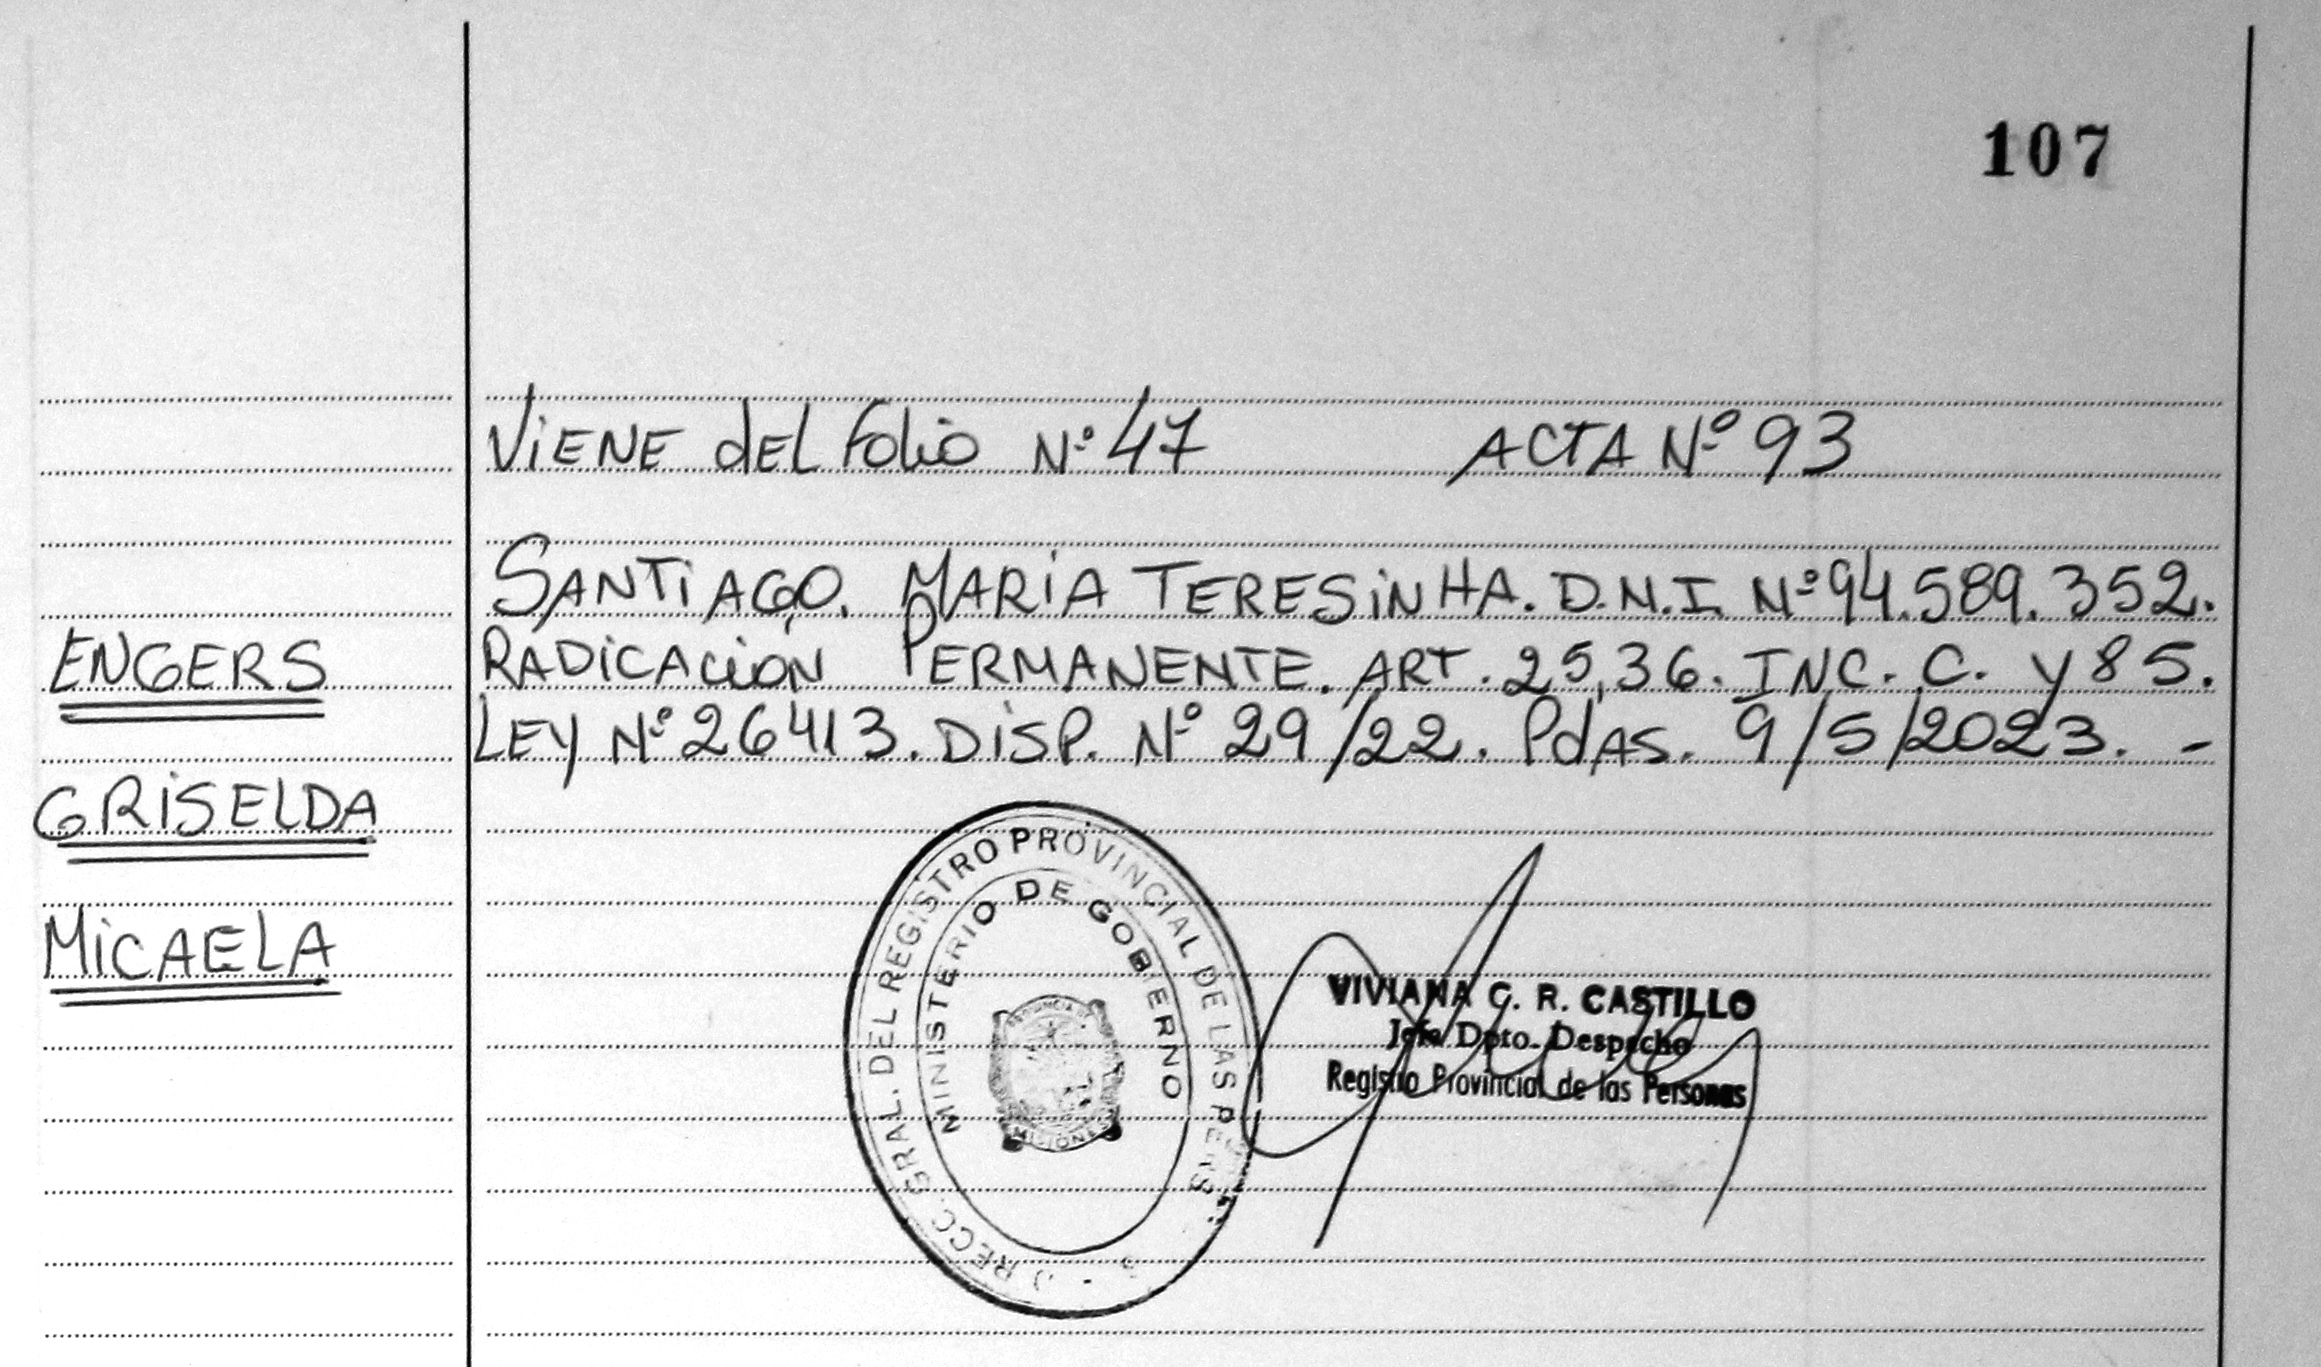 107
Viene del Folio Nº 47 ACTA Nº 93
SANTIAGO. MARIA TERESINHA. D.N.I. Nº 94.589.352.
RADICACIÓN PERMANENTE. ART. 25,36. INC. C. y 85.
LEY Nº 26413. DISP. Nº 29/22. PdAS. 9/5/2023. -
ENGERS
GRISELDA
MICAELA
RECC. GRAL. DEL REGISTRO PROVINCIAL DE LAS PERS
MINISTERIO DE GOBIERNO
PROVINCIA DE
MISIONES
VIVIANA C. R. CASTILLO
Jefe Dpto. Despacho
Registro Provincial de las Personas